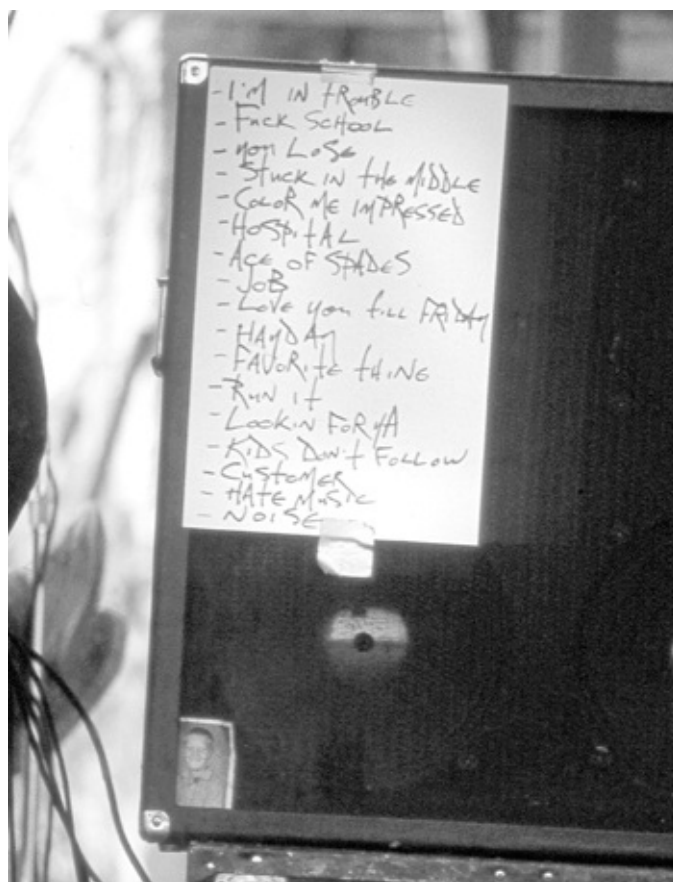 - I'M IN TROUBLE
- FUCK SCHOOL
- YOU LOSE
- STUCK IN THE MIDDLE
- COLOR ME IMPRESSED
- HOSPITAL
- ACE OF SPADES
- JOB
- LOVE YOU TILL FRIDAY
- HAYDAY
- FAVORITE THING
- RUN IT
- LOOKIN FOR YA
- KIDS DON'T FOLLOW
- CUSTOMER
- HATE MUSIC
- NOISE